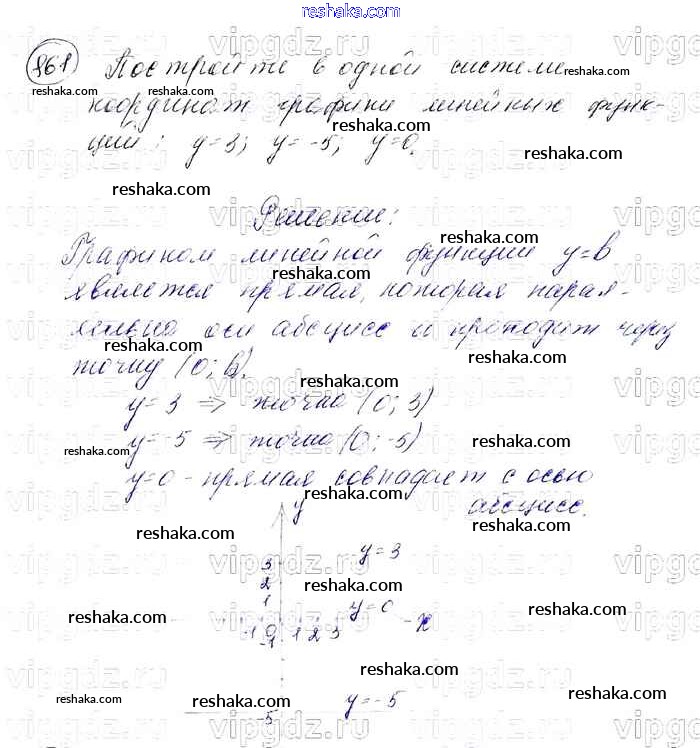 reshaka.com
861 Постройте в одной системе
координат графики линейных функ-
ций: y=3; y=-5; y=0.
Решение:
Графиком линейной функции y=b
является прямая, которая парал-
лельна оси абсцисс и проходит через
точку (0; b).
y=3 ⇒ точка (0; 3)
y=-5 ⇒ точка (0; -5)
y=0 - прямая совпадает с осью
абсцисс.
y
3 y=3
2
1 y=0
-1 0 1 2 3 x
-1
-5 y=-5